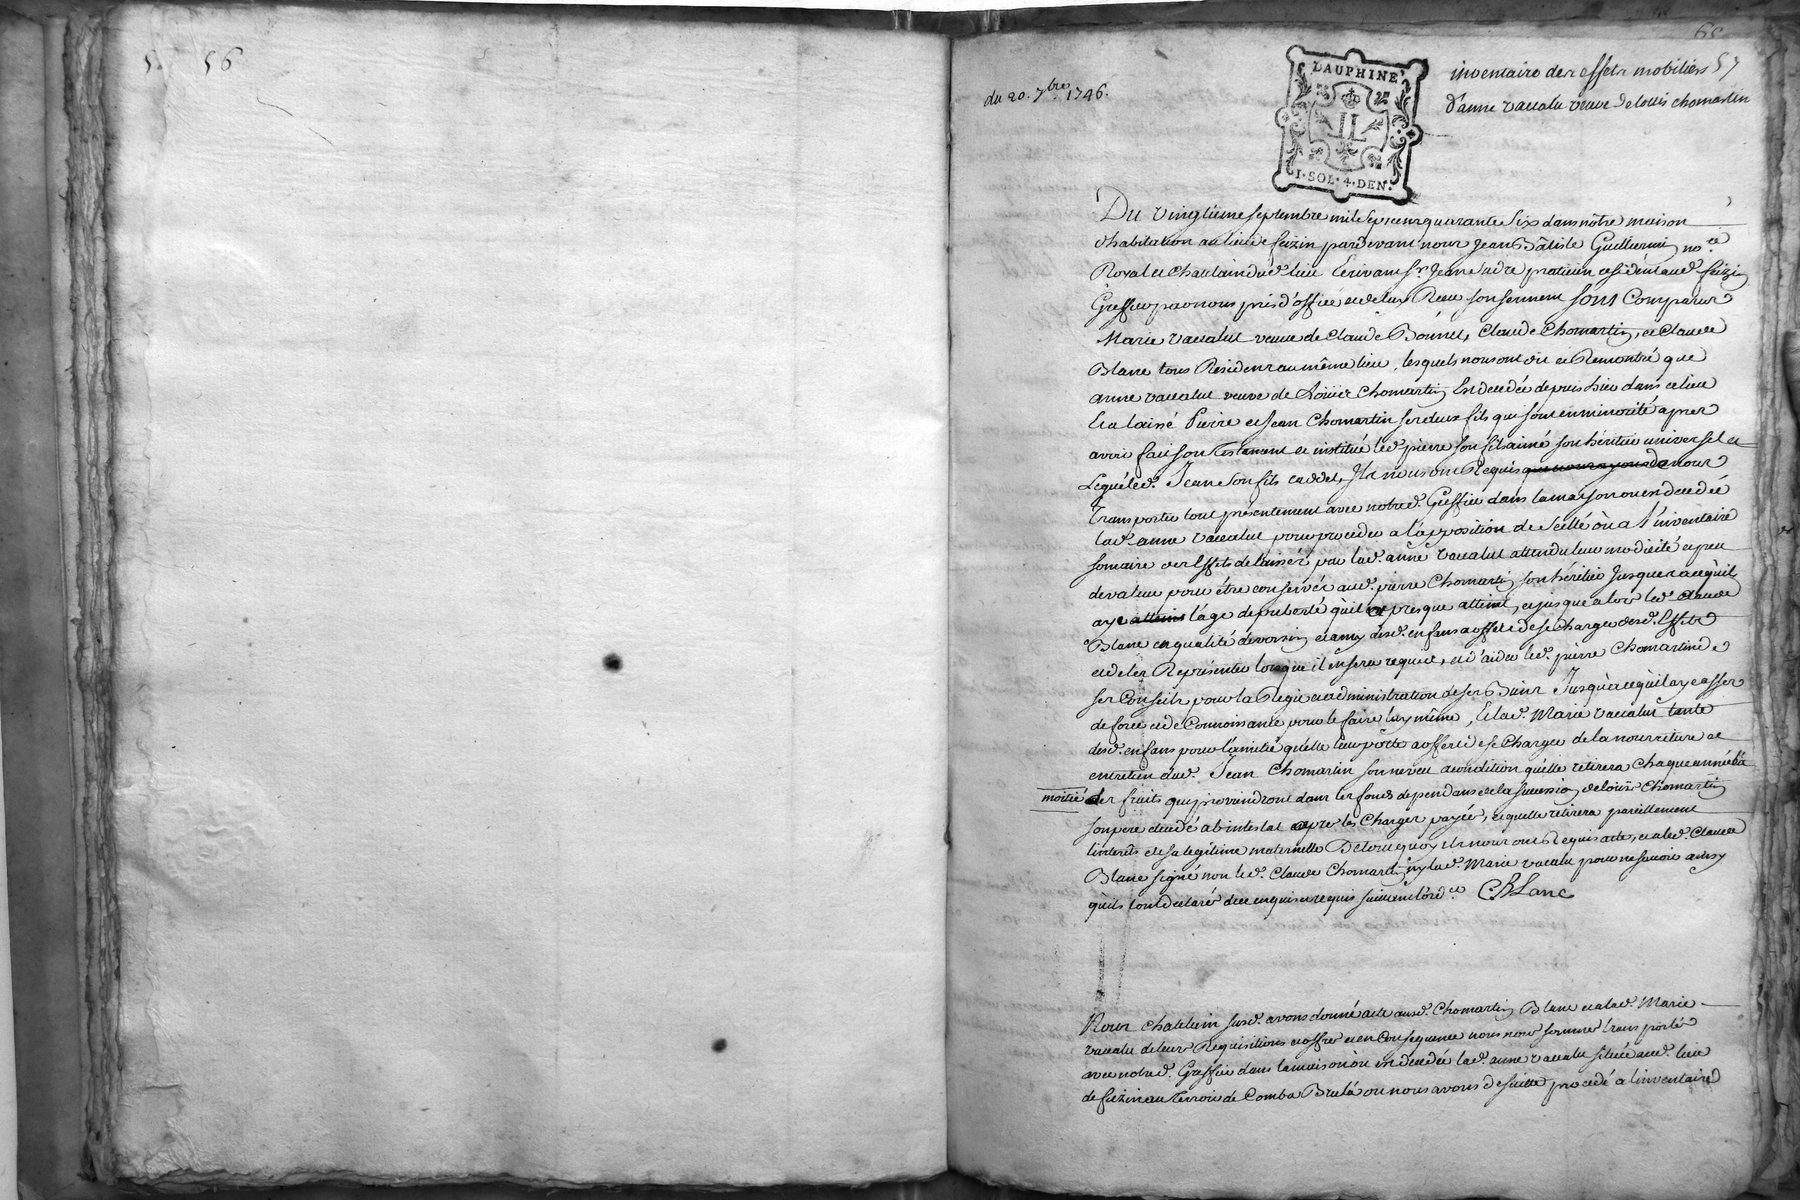 56
65
57
du 20. 7bre 1746.
DAUPHINÉ
I·SOL·4·DEN·
inventaire des effets mobiliers
d'anne vacalu veuve de louis chomartin
Du vingtieme septembre mil sept cent quarante six dans nôtre maison
d'habitation au lieu de feizin pardevant nous Jean Bâtiste Guillermin no.re
Royal et Chatelain dud. lieu Ecrivant sr. Jean praticien residant aud. feizin
Greffier par nous pris d'office et de luy Receu son serment sont Comparus
Marie vacalut veuve de Claude Bonnet, Claude Chomartin, et Claude
Blanc tous Residens au même lieu, lesquels nous ont dit et Remontré que
anne vacalut veuve de Loüis Chomartin Est decedée depuis hier dans ce lieu
Et a laissé Pierre et Jean Chomartin ses deux fils qui sont en minorité apres
avoir fait son Testament et institué led. pierre son fils ainé son héritier universel et
Legué led. Jean son fils caddet, Ils nous ont Requis que nous ayons de nous
Transporter tout présentement avec notred. Greffier dans la maison ou est decedée
lad. anne vacalut pour proceder a l'apposition de Scellé où a l'inventaire
somaire des Effets delaissés par lad. anne vacalut attendu leur modicité et peu
de valeur pour être conservés aud. pierre Chomartin son héritier Jusques a ce qu'il
aye atteint l'âge de puberté qu'il a presque atteint, et jusque alors led. Claude
Blanc en qualité de voisin et amy desd. enfans a offert de se charger desd. Effets
et de les Représenter lorsque il en sera requis, et d'aider led. pierre Chomartin de
ses Conseils pour la Regie et administration de ses Biens Jusqu'a ce qu'il aye asses
de force et de Connoissance pour le faire luy même, Et lad. Marie vacalut tante
desd. enfans pour l'amitié qu'elle leur porte a offert de se Charger de la nourriture et
entretien dud. Jean Chomartin son neveu a condition qu'elle retirera Chaque année la
moitié des fruits qui proviendront dans les fonds dependans de la succession de loüis Chomartin
son pere decedé ab intestat apres les Charges payées, et quelle retirera pareillement
l'interêts de sa legitime maternelle De tout quoy ils nous ont Requis acte, et a led. Claude
Blanc signé non led. Claude Chomartin ny lad. Marie vacalu pour ne savoir ainsy
qu'ils l'ont declaré de ce enquis et requis suivant l'ord.ce CBLanc
Nous chatelain susd. avons donné acte ausd. Chomartin Blanc et a lad. Marie
vacalu de leurs Requisitions et offres et en Consequence nous nous sommes transportés
avec notred. Greffier dans la maison où est decedée lad. anne vacalu située aud. lieu
de feizin au Terroir de Comba Brulá ou nous avons de suitte procedé a l'inventaire